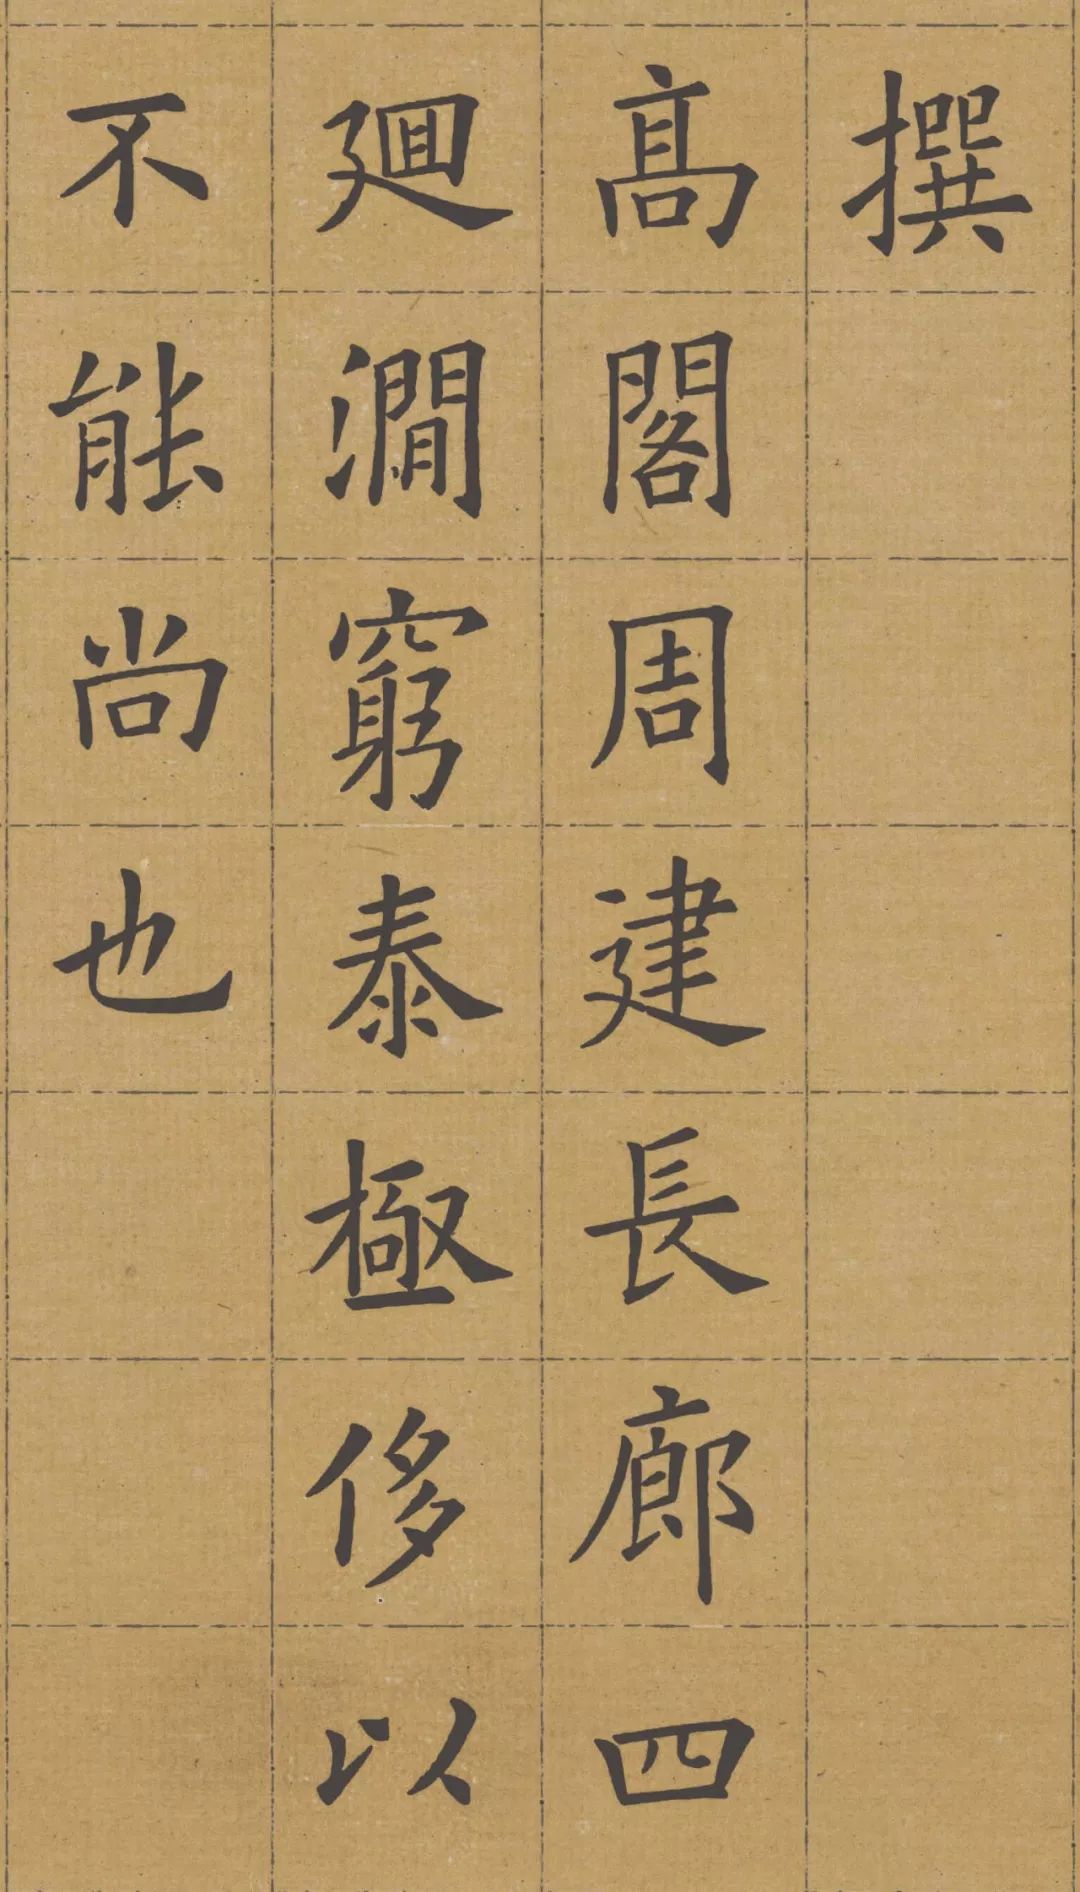 撰
高閣周建長廊四
廻澗窮泰極侈以
不能尚也